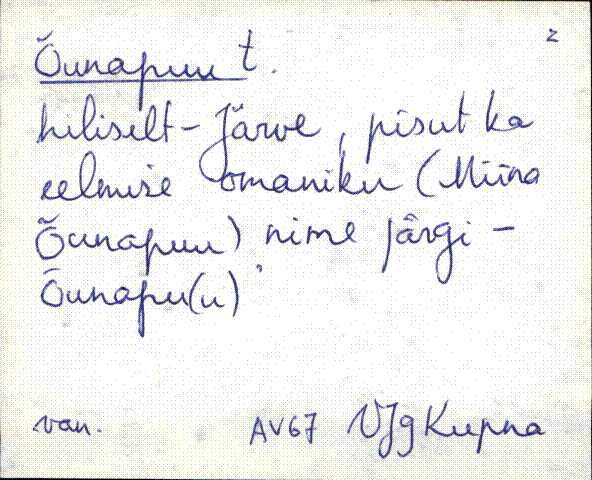 2
Õunapuu t.
hiliselt - Järve, pisut ka
eelmise omaniku (Miina
Õunapuu) nime järgi -
Õunapu(u)
van. AV67 VJg Kupna